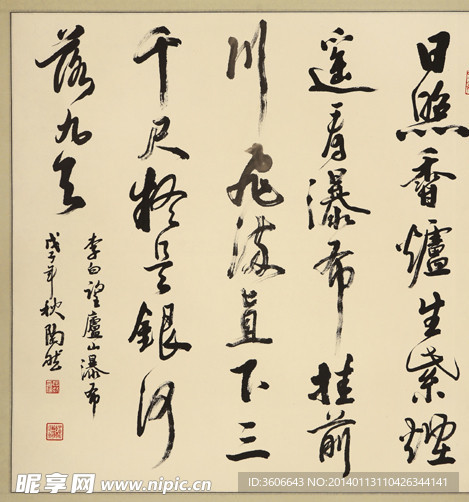 日照香爐生紫煙
遙看瀑布挂前
川飛流直下三
千尺疑是銀河
落九天
李白望廬山瀑布
戊子年秋陶然
昵享网 www.nipic.cn
ID:3606643 NO:20140113110426344141